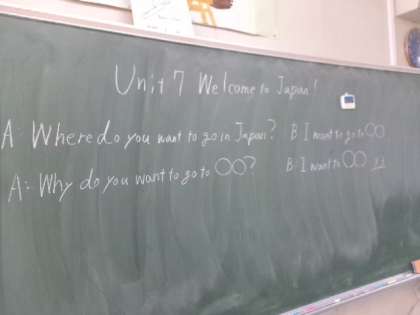 Unit 7 Welcome to Japan!
A: Where do you want to go in Japan? B: I want to go to ○○
A: Why do you want to go to ○○? B: I want to ○○